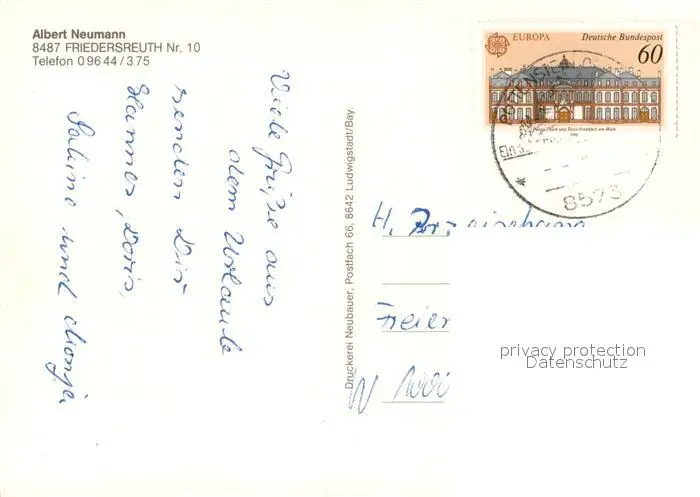 Albert Neumann
8487 FRIEDERSREUTH Nr. 10
Telefon 0 96 44 / 3 75
Viele Grüße aus
dem Urlaube
senden Dir
Hannes, Doris,
Sabine und
Druckerei Neubauer, Postfach 66, 8642 Ludwigstadt/Bay.
EUROPA Deutsche Bundespost
60
Palais Thurn und Taxis Frankfurt am Main
1990
8573
H.
Freien
W 1000
privacy protection
Datenschutz